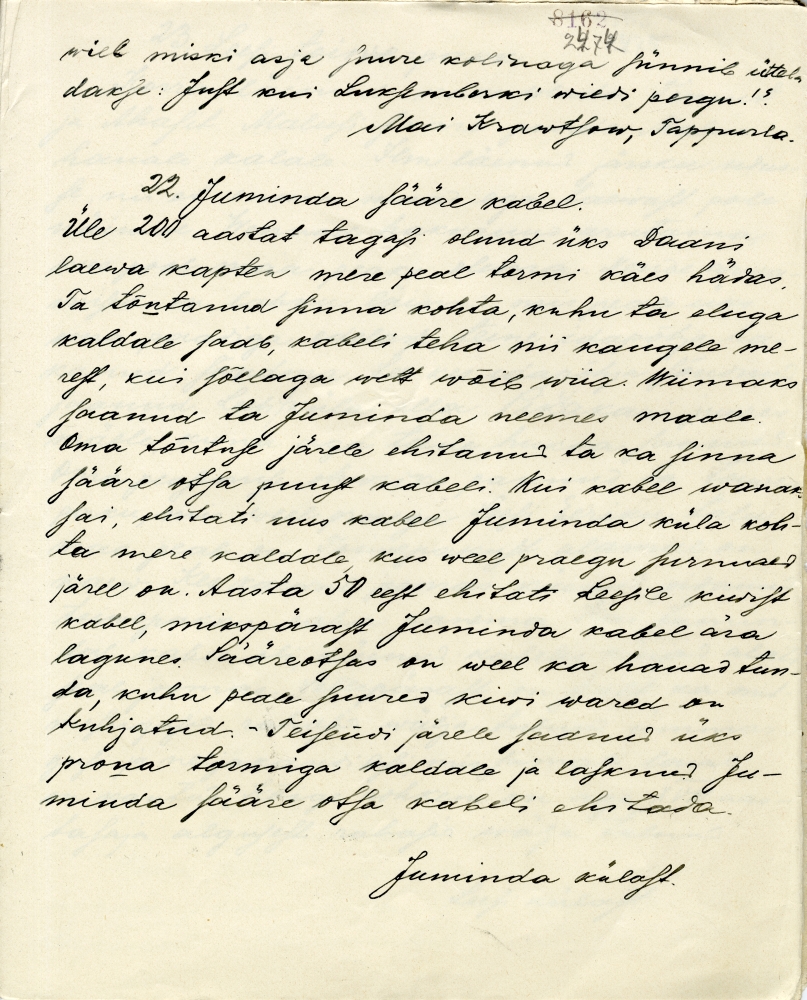 8162
2474
wiel miski asja suure kolinaga sünnib üttel-
dakse: Just kui Luksemburki wiedi pergu!"
Mai Krawtsow, Tappurla.
22. Juminda sääre kabel.
Üle 200 aastat tagasi olnud üks Daani
laewa kapten mere peal tormi käes hädas.
Ta tõntanud sinna kohta, kuhu ta eluga
kaldale saab, kabeli teha nii kaugele me-
rest, kui sõllaga wett wõib wiia. Wiimaks
saanud ta Juminda neemes maale.
Oma tõntuse järele ehitanud ta ka sinna
sääre otsa puust kabeli. Kui kabel wanaks
sai, ehitati uus kabel Juminda küla koh-
ta mere kaldale, kus weel praegu surnuaed
järel on. Aasta 50 eest ehitati Leesile kiwist
kabel, mikspärast Juminda kabel ära
lagunes. Sääreotsas on weel ka hauad tun-
da, kuhu peale suured kiwi wared on
kuhjatud. - Teisendi järele saanud üks
prona tormiga kaldale ja lasknud Ju-
minda sääre otsa kabeli ehitada.
Juminda külast.